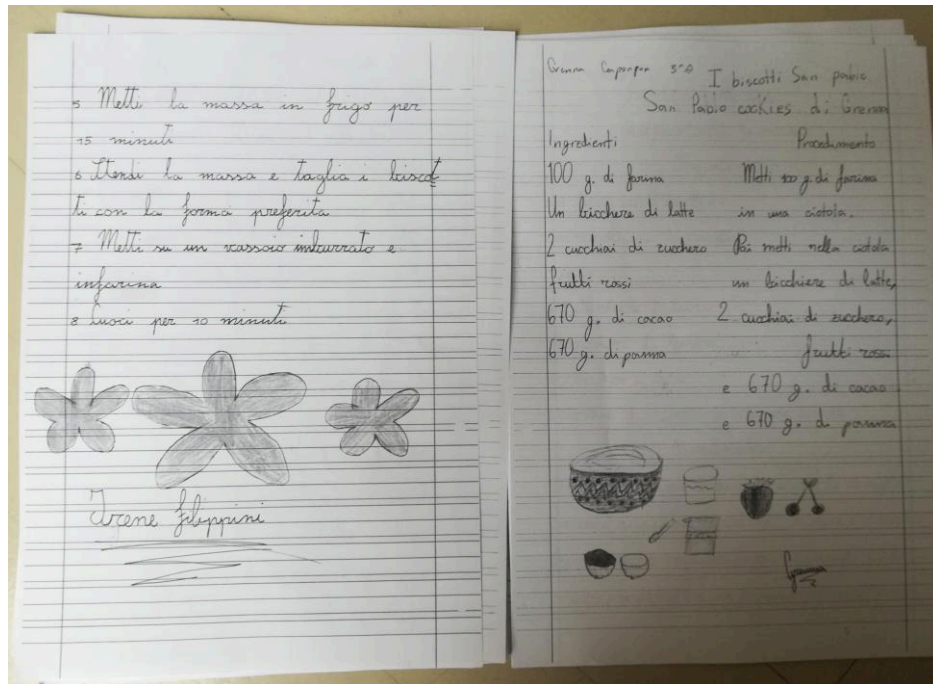 5 Metti la massa in frigo per
15 minuti
6 Stendi la massa e taglia i biscot
ti con la forma preferita
7 Metti su un vassoio imburrato e
infarina
8 Cuoci per 10 minuti
Irene Filippini
3°A
I biscotti San pablo
San Pablo cookies di Gremm
Ingredienti
100 g. di farina
Un bicchere di latte
2 cucchiai di zucchero
frutti rossi
670 g. di cacao
670 g. di panna
Procedimento
Metti 100 g. di farina
in una ciotola.
Poi metti nella ciotola
un bicchiere di latte,
2 cucchiai di zucchero,
frutti rossi
e 670 g. di cacao
e 670 g. di panna